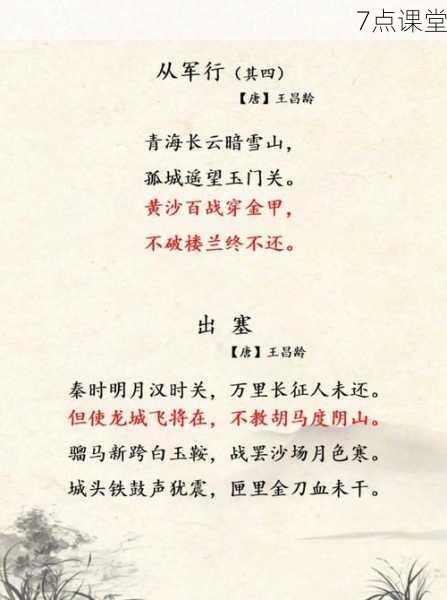 7点课堂
从军行（其四）
【唐】王昌龄
青海长云暗雪山，
孤城遥望玉门关。
黄沙百战穿金甲，
不破楼兰终不还。
出 塞
【唐】王昌龄
秦时明月汉时关，万里长征人未还。
但使龙城飞将在，不教胡马度阴山。
骝马新跨白玉鞍，战罢沙场月色寒。
城头铁鼓声犹震，匣里金刀血未干。